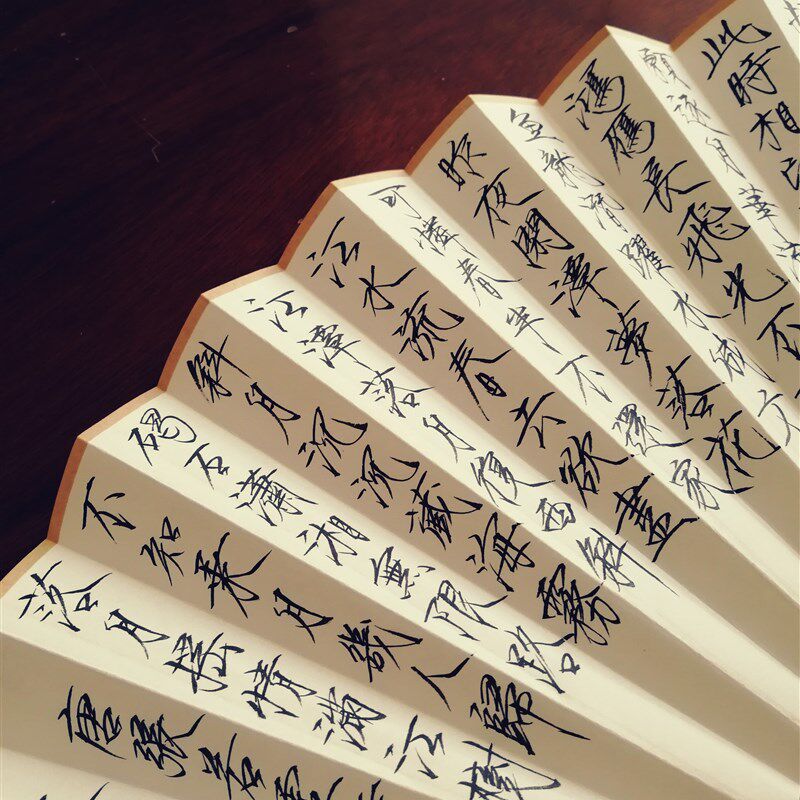 此時相
願逐月華
鴻鴈長飛光不
魚龍潛躍水成文
昨夜閑潭夢落花
可憐春半不還家
江水流春去欲盡
江潭落月復西斜
斜月沉沉藏海霧
碣石瀟湘無限路
不知乘月幾人歸
落月搖情滿江樹
唐張若虛